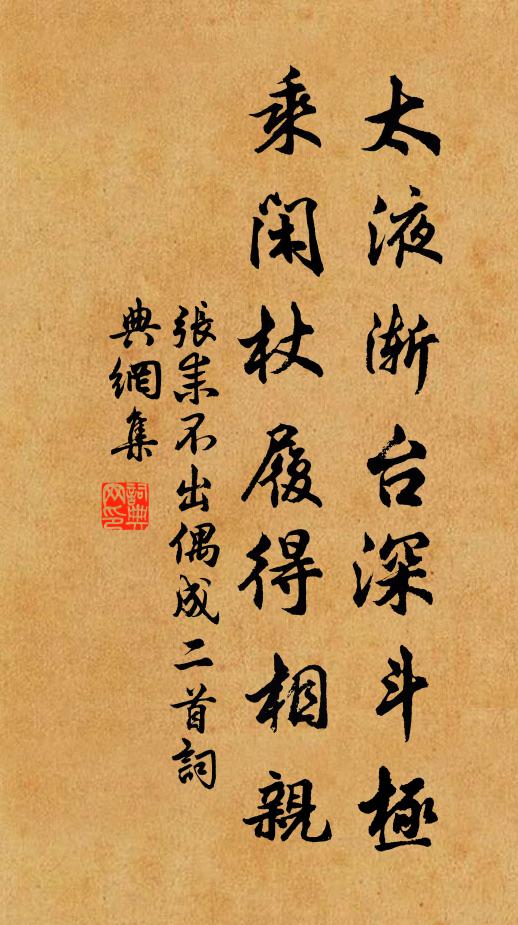 太液渐台深斗極
乘闲杖履得相親
張耒不出偶成二首詞
典網集
詞典
网印